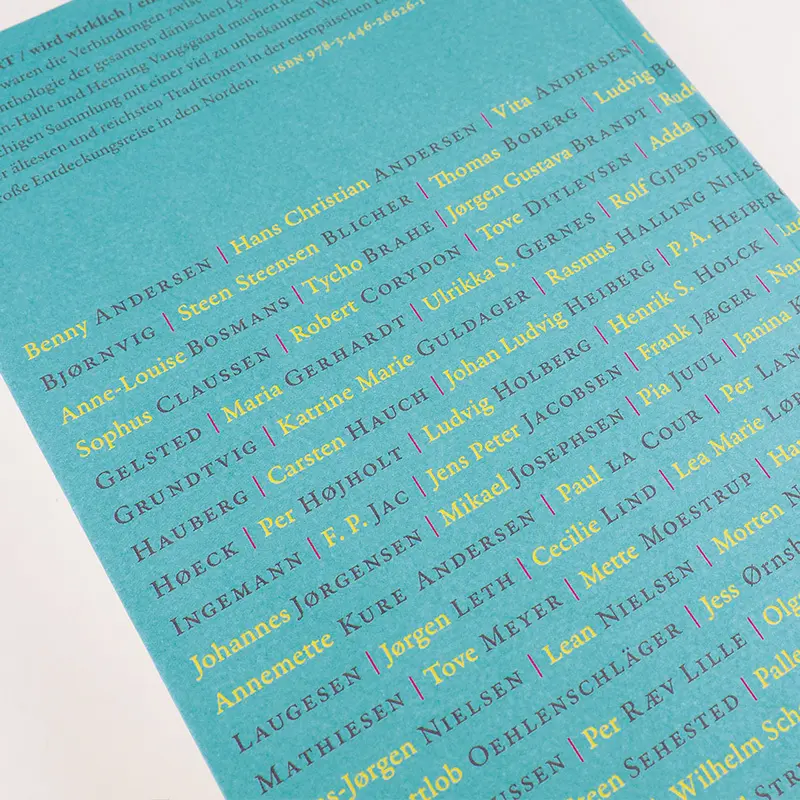 RT / wird wirklich / 
waren die Verbindungen zwis
nthologie der gesamten dänischen Ly
n-Halle und Henning Vangsgaard machen
higen Sammlung mit einer viel zu unbekannten
r ältesten und reichsten Traditionen in der europäischen
roße Entdeckungsreise in den Norden.
ISBN 978-3-446-26626-1
Benny ANDERSEN | Hans Christian ANDERSEN | Vita ANDERSEN |
BJØRNVIG | Steen Steensen BLICHER | Thomas BOBERG | Ludvig
Anne-Louise BOSMANS | Tycho BRAHE | Jørgen Gustava BRANDT |
Sophus CLAUSSEN | Robert CORYDON | Tove DITLEVSEN | Adda DJ
GELSTED | Maria GERHARDT | Ulrikka S. GERNES | Rolf GJEDSTED
GRUNDTVIG | Katrine Marie GULDAGER | Rasmus HALLING NIELS
HAUBERG | Carsten HAUCH | Johan Ludvig HEIBERG | P. A. HEIBER
HØECK | Per HØJHOLT | Ludvig HOLBERG | Henrik S. HOLCK | Lu
INGEMANN | F. P. JAC | Jens Peter JACOBSEN | Frank JÆGER | Nan
Johannes JØRGENSEN | Mikael JOSEPHSEN | Pia JUUL | Janina K
Annemette KURE ANDERSEN | Paul LA COUR | Per LANG
LAUGESEN | Jørgen LETH | Cecilie LIND | Lea Marie LØP
MATHIESEN | Tove MEYER | Mette MOESTRUP | Ha
s-Jørgen NIELSEN | Lean NIELSEN | Morten N
ttlob OEHLENSCHLÄGER | Jess ØRNSB
USSEN | Per RÆV LILLE | Olg
teen SEHESTED | Palle
Wilhelm Sch
STR